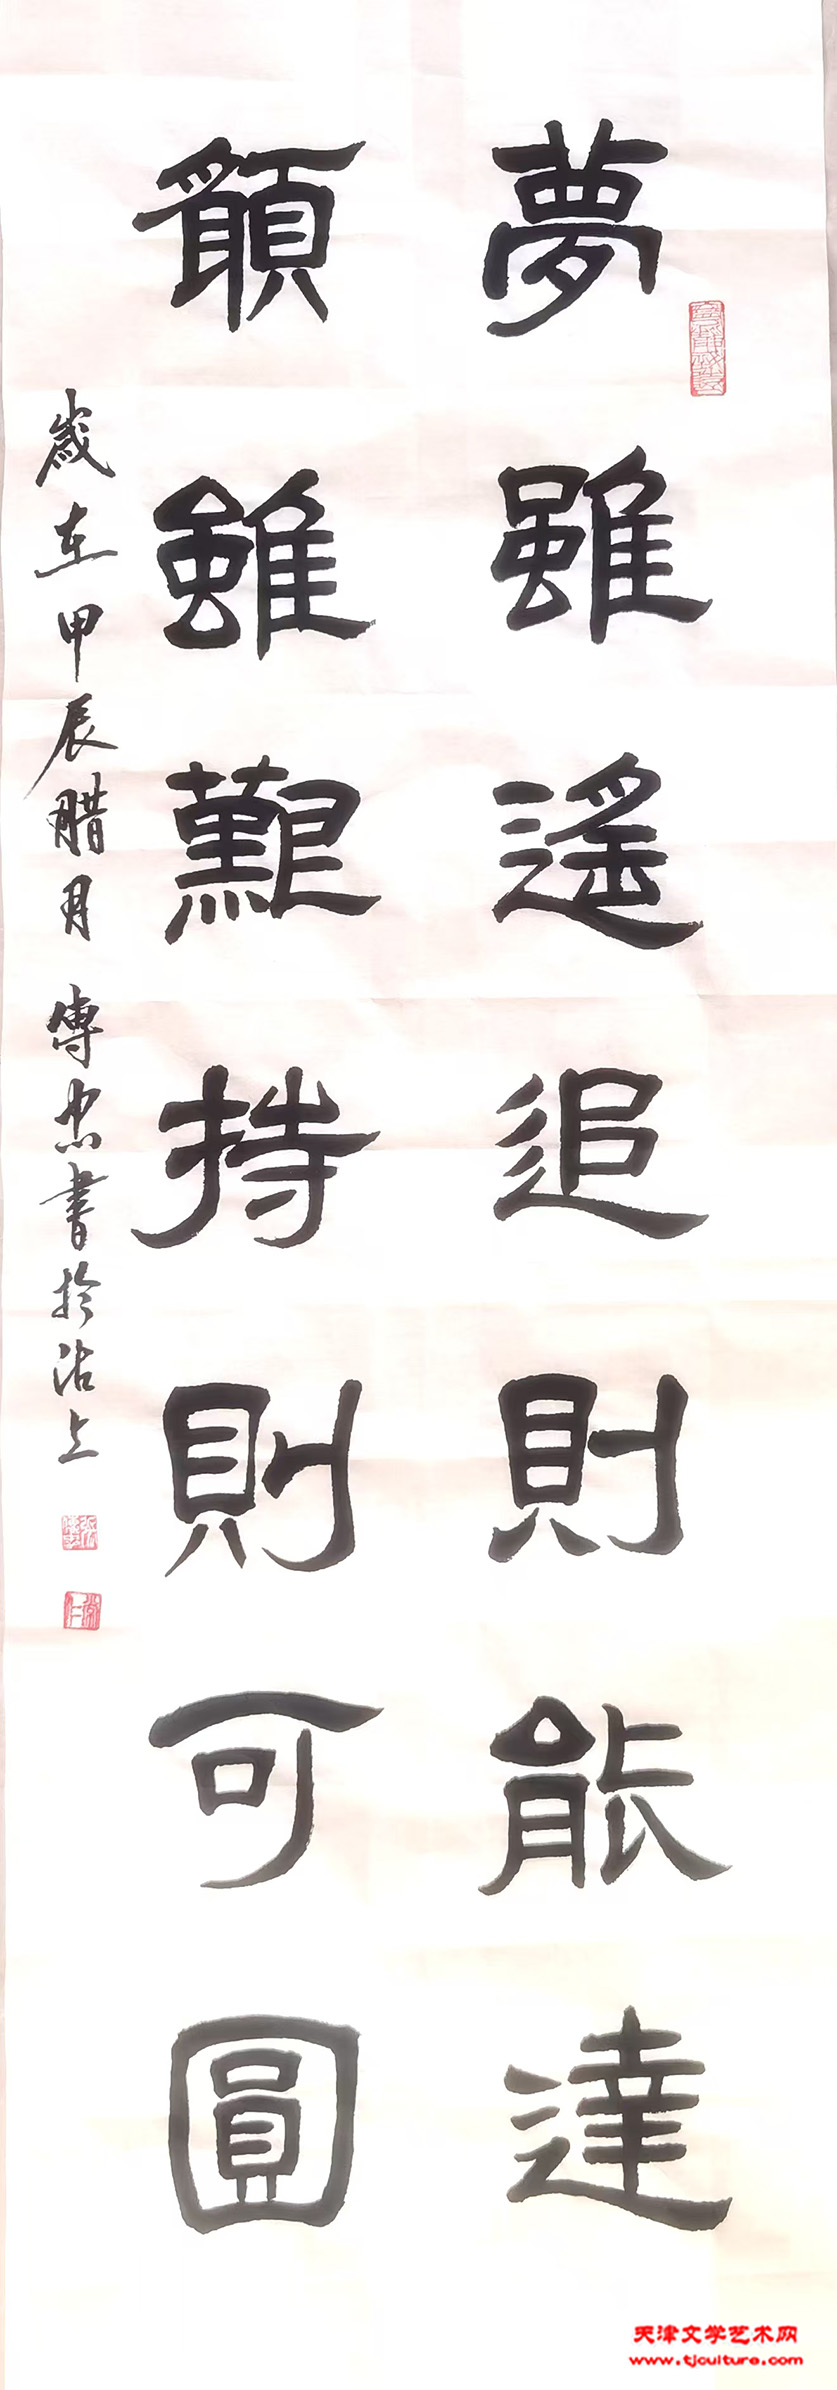 夢雖遙追則能達
願雖艱持則可圓
歲在甲辰腊月 傳忠書於沽上
天津文学艺术网
www.tjculture.com